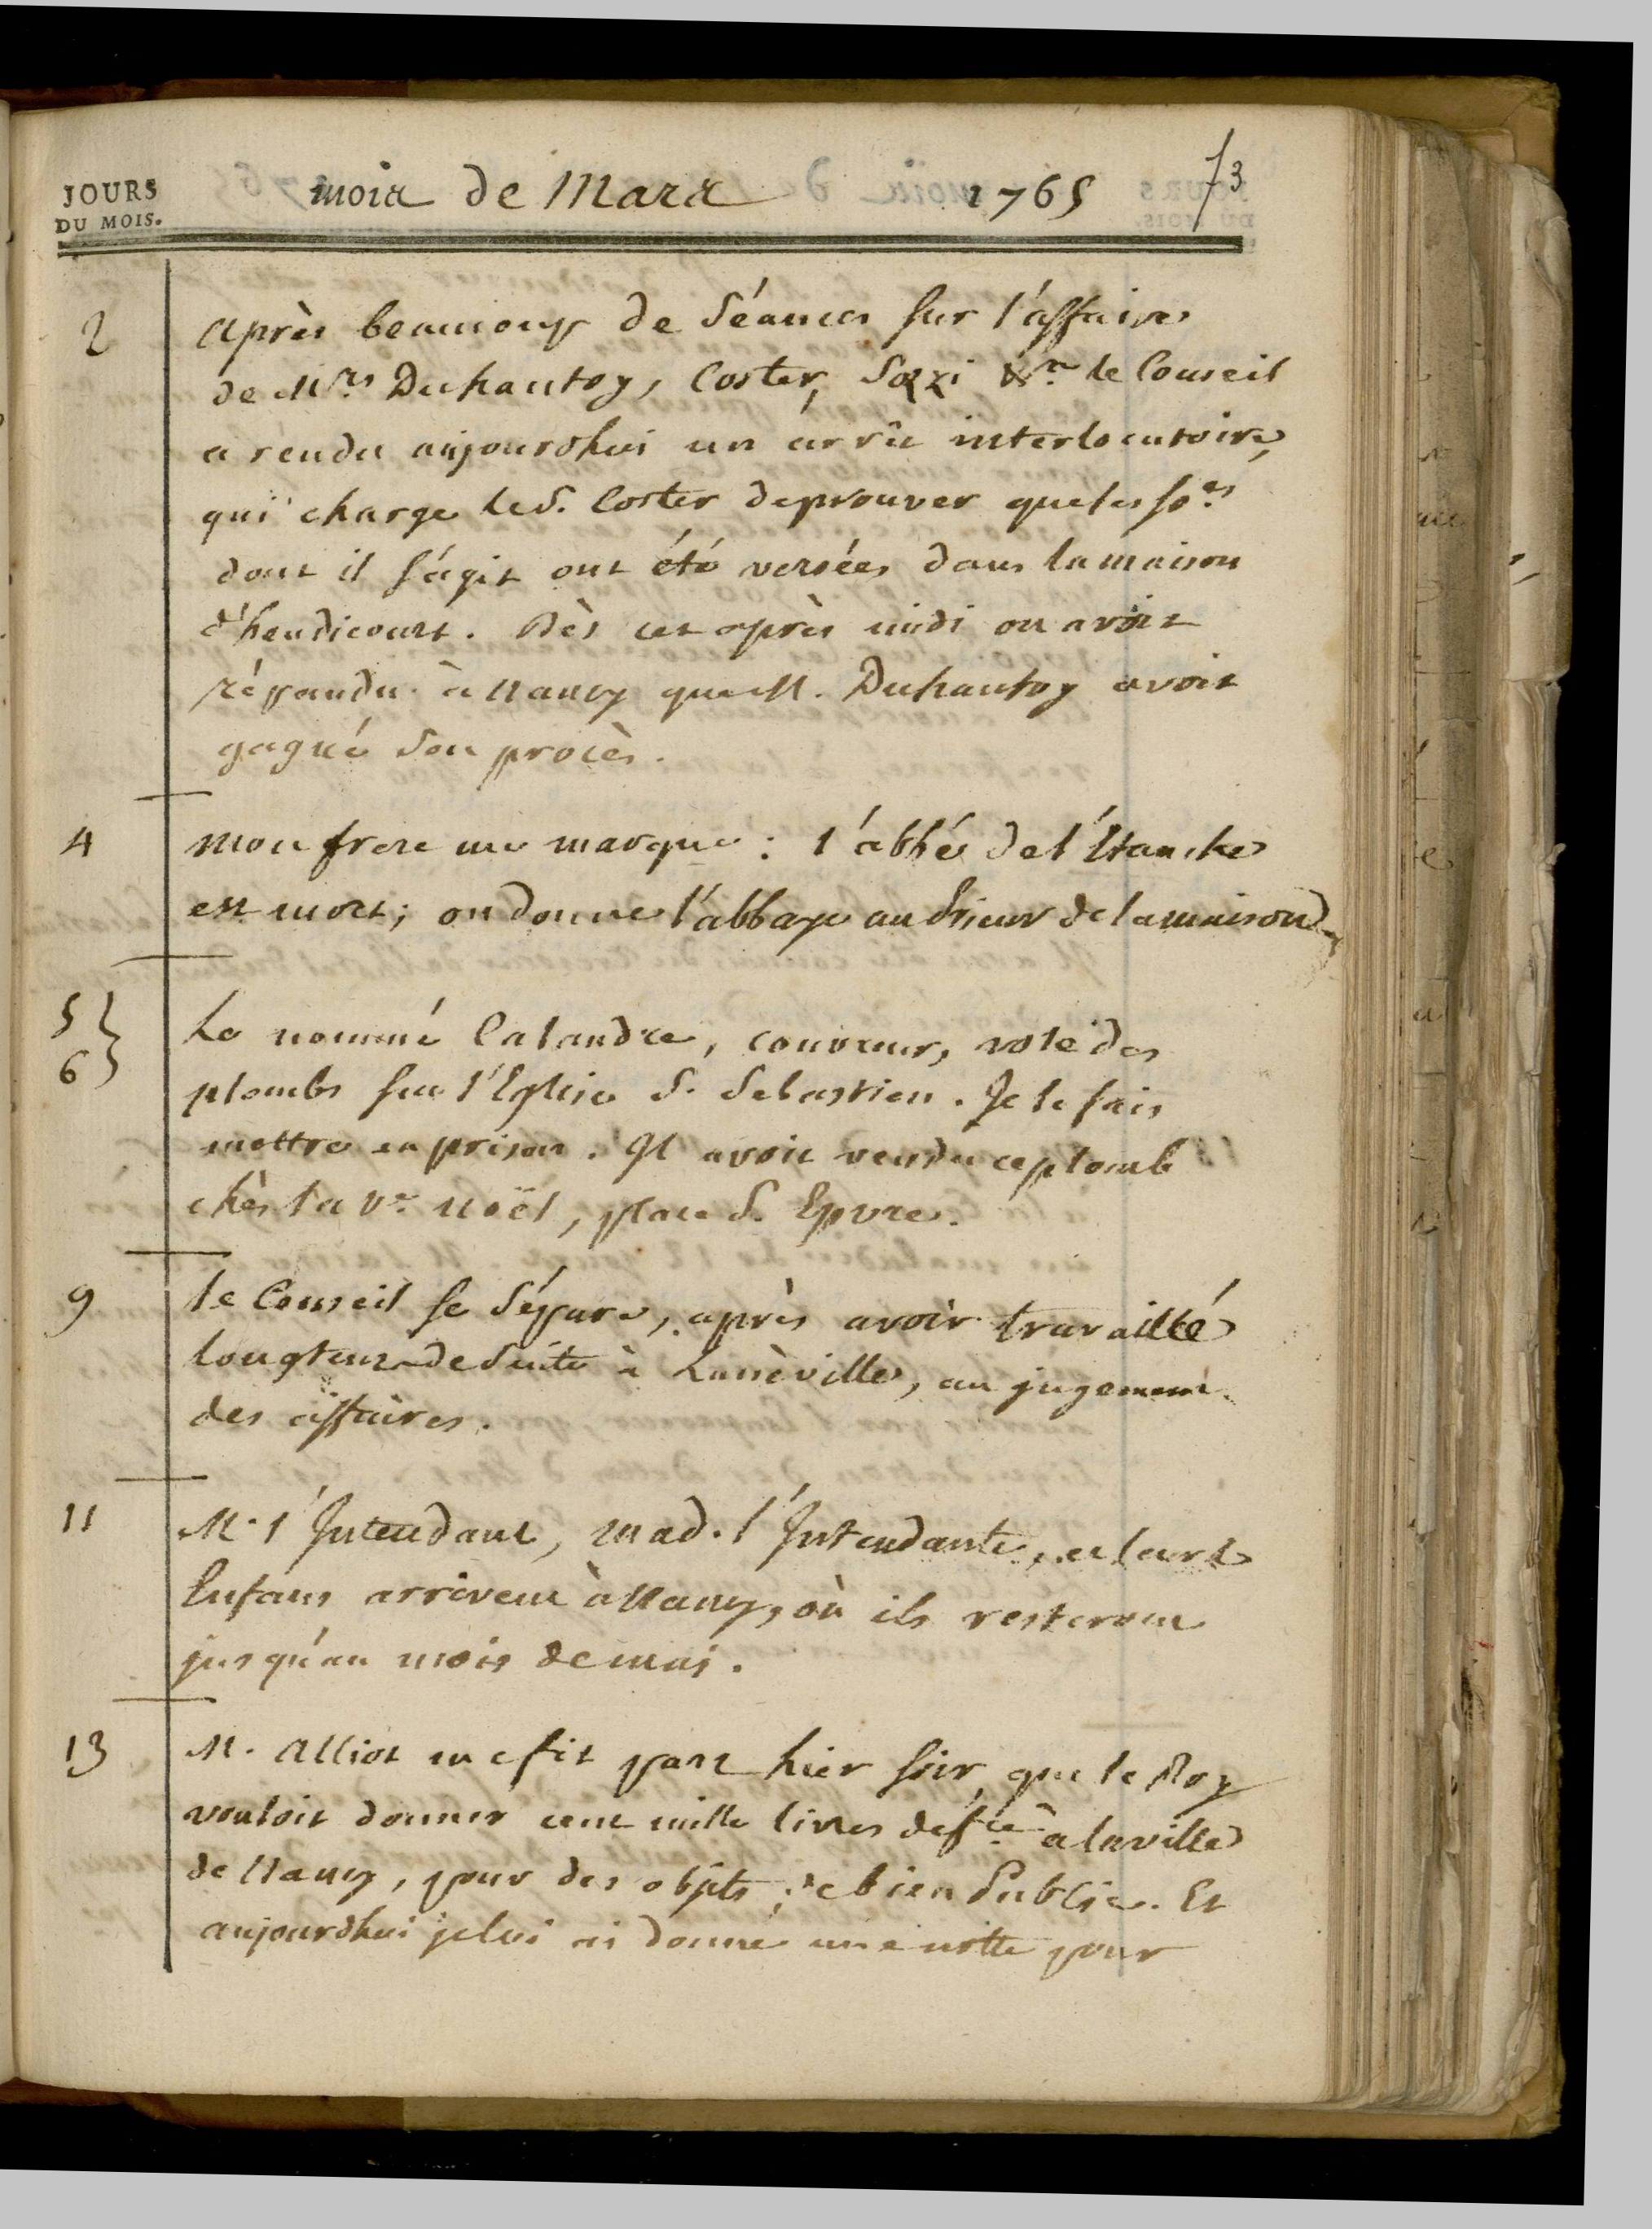 73
JOURS
DU MOIS.
mois de Mars 1765
2 après beaucoup de Séances sur l'affaire
de Mrs. Duhautoy, Coster, Sozzi &c. le Conseil
a rendu aujourdhui un arrêt interlocutoire,
qui charge le S. Coster de prouver que les so.es
dont il s'agit ont été versées dans la maison
d'heudicourt. Dès cet après midi on avoit
répandu à Nancy que M. Duhautoy avoit
gagné son procès.
4 Mon frere me marque : l'abbé de l'Etanche
est mort; on donne l'abbaye au Prieur de la maison.
5 } Le nommé Calandre, couvreur, vole des
6 } plombs sur l'Eglise S. Sebastien. Je le fais
mettre en prison. Il avoit vendu ce plomb
chès la Ve. Noël, place S. Epvre.
9 le Conseil se Sépare, après avoir travaillé
longtems de suite à Lunèville, au jugement
des affaires.
11 M. l'Intendant, Mad. l'Intendante, et leurs
Enfans arrivent à Nancy, où ils resteront
jusqu'au mois de mai.
13 M. Alliot me fit part hier soir, que le Roy
vouloit donner cent mille livres de fce. à la ville
de Nancy, pour des objets de bien Public. Et
aujourdhui je lui ai donné une notte pour